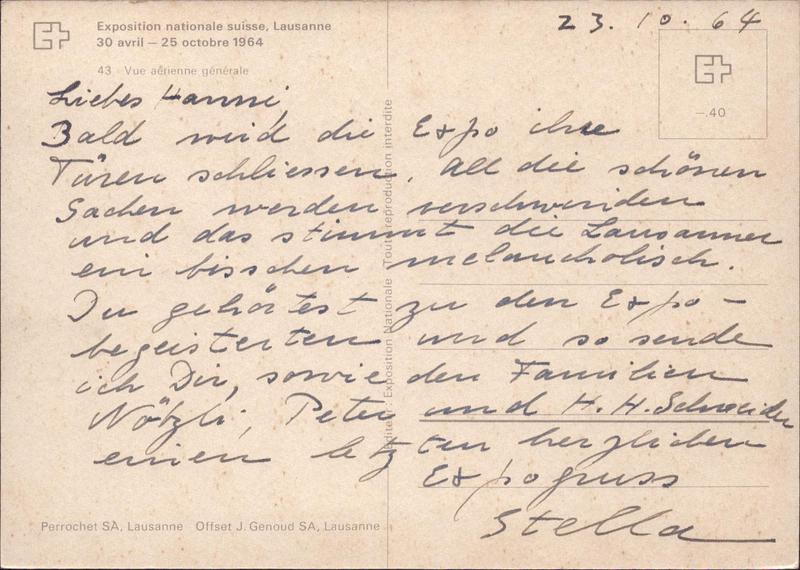 Exposition nationale suisse, Lausanne
30 avril – 25 octobre 1964
43 Vue aérienne générale
23.10.64
–.40
Liebes Hanni,
Bald wird die Expo ihre
Türen schliessen. All die schönen
Sachen werden verschwinden
und das stimmt die Lausanner
ein bisschen melancholisch.
Du gehörtest zu den Expo-
begeisterten und so sende
ich Dir, sowie den Familien
Nötzli, Peter und H. H. Schneider
einen letzten herzlichen
Expogruss
Stella
Exposition Nationale Toute reproduction interdite
Perrochet SA, Lausanne Offset J. Genoud SA, Lausanne